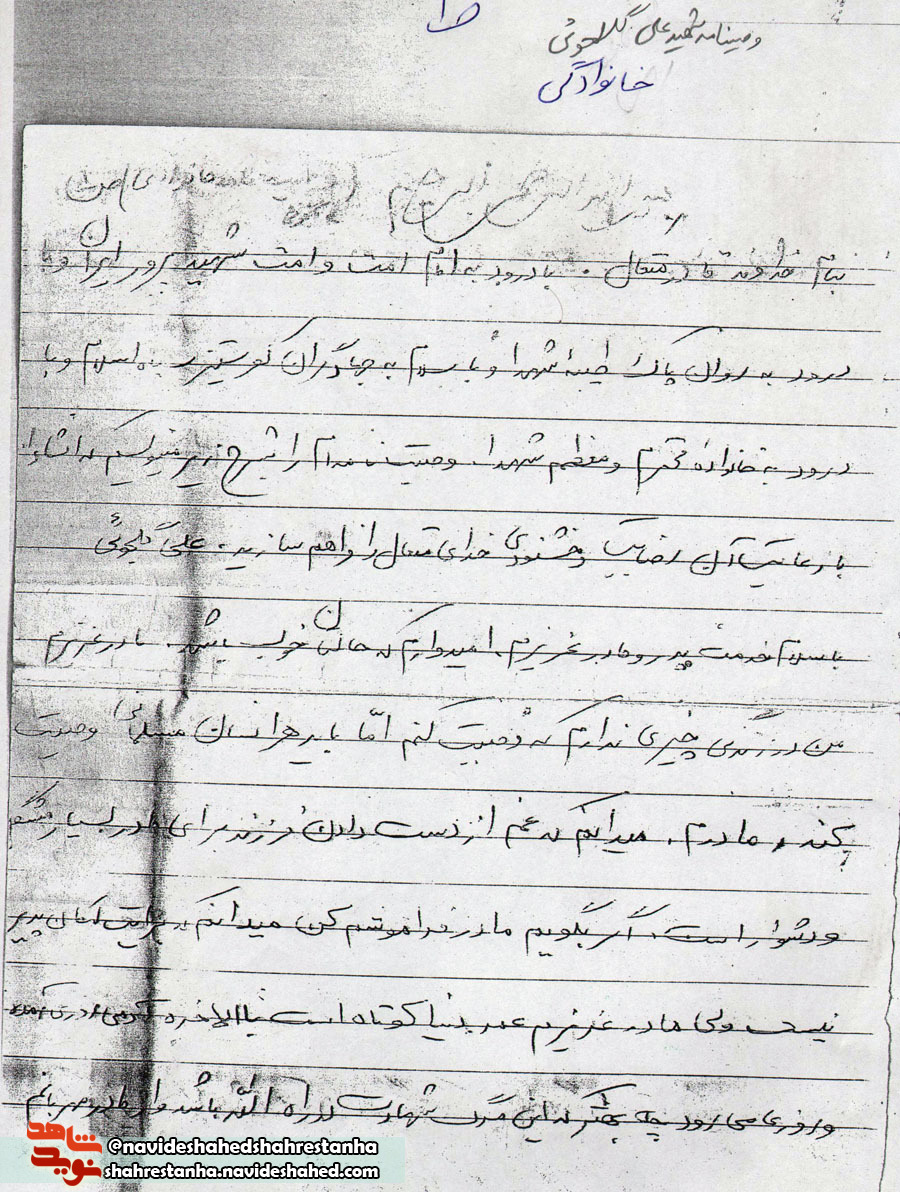 ص ۱
وصیتنامه شهید علی گلاحوئی
خانوادگی
بسم الله الرحمن الرحیم (وصیت نامه خانوادگی) ص ۱
بنام خداوند قادر متعال . با درود به امام امت و امت شهید پرور ایران و با
درود به روان پاک طیبهٔ شهدا و با سلام به جهادگران کفرستیز راه اسلام و با
درود به خانوادهٔ محترم و معظم شهدا . وصیت نامه ام را بشرح زیر مینویسم که انشاءا
با رعایت آن رضایت و خشنودی خدای متعال را فراهم سازید . علی گلچوئی
با سلام خدمت پدر و مادر عزیزم . امیدوارم که حالتان خوب باشد . مادر عزیزم
من در زندگی چیزی ندارم که وصیت کنم امّا باید هر انسان مسلمانی وصیت
بکند ، مادرم ، میدانم که غم از دست دادن فرزند برای مادر بسیار مشکل
و دشوار است . اگر بگویم مادر فراموشم کن میدانم که برایت امکان پذیر
نیست ولی مادر عزیزم عمر دنیا کوتاه است بالاخره آدمی روزی آمده
و روزی می رود چه بهتر که این مرگ شهادت در راه اللّه باشد و ای مادر مهربانم
شاهد
نوید
@navideshahedshahrestanha
shahrestanha.navideshahed.com